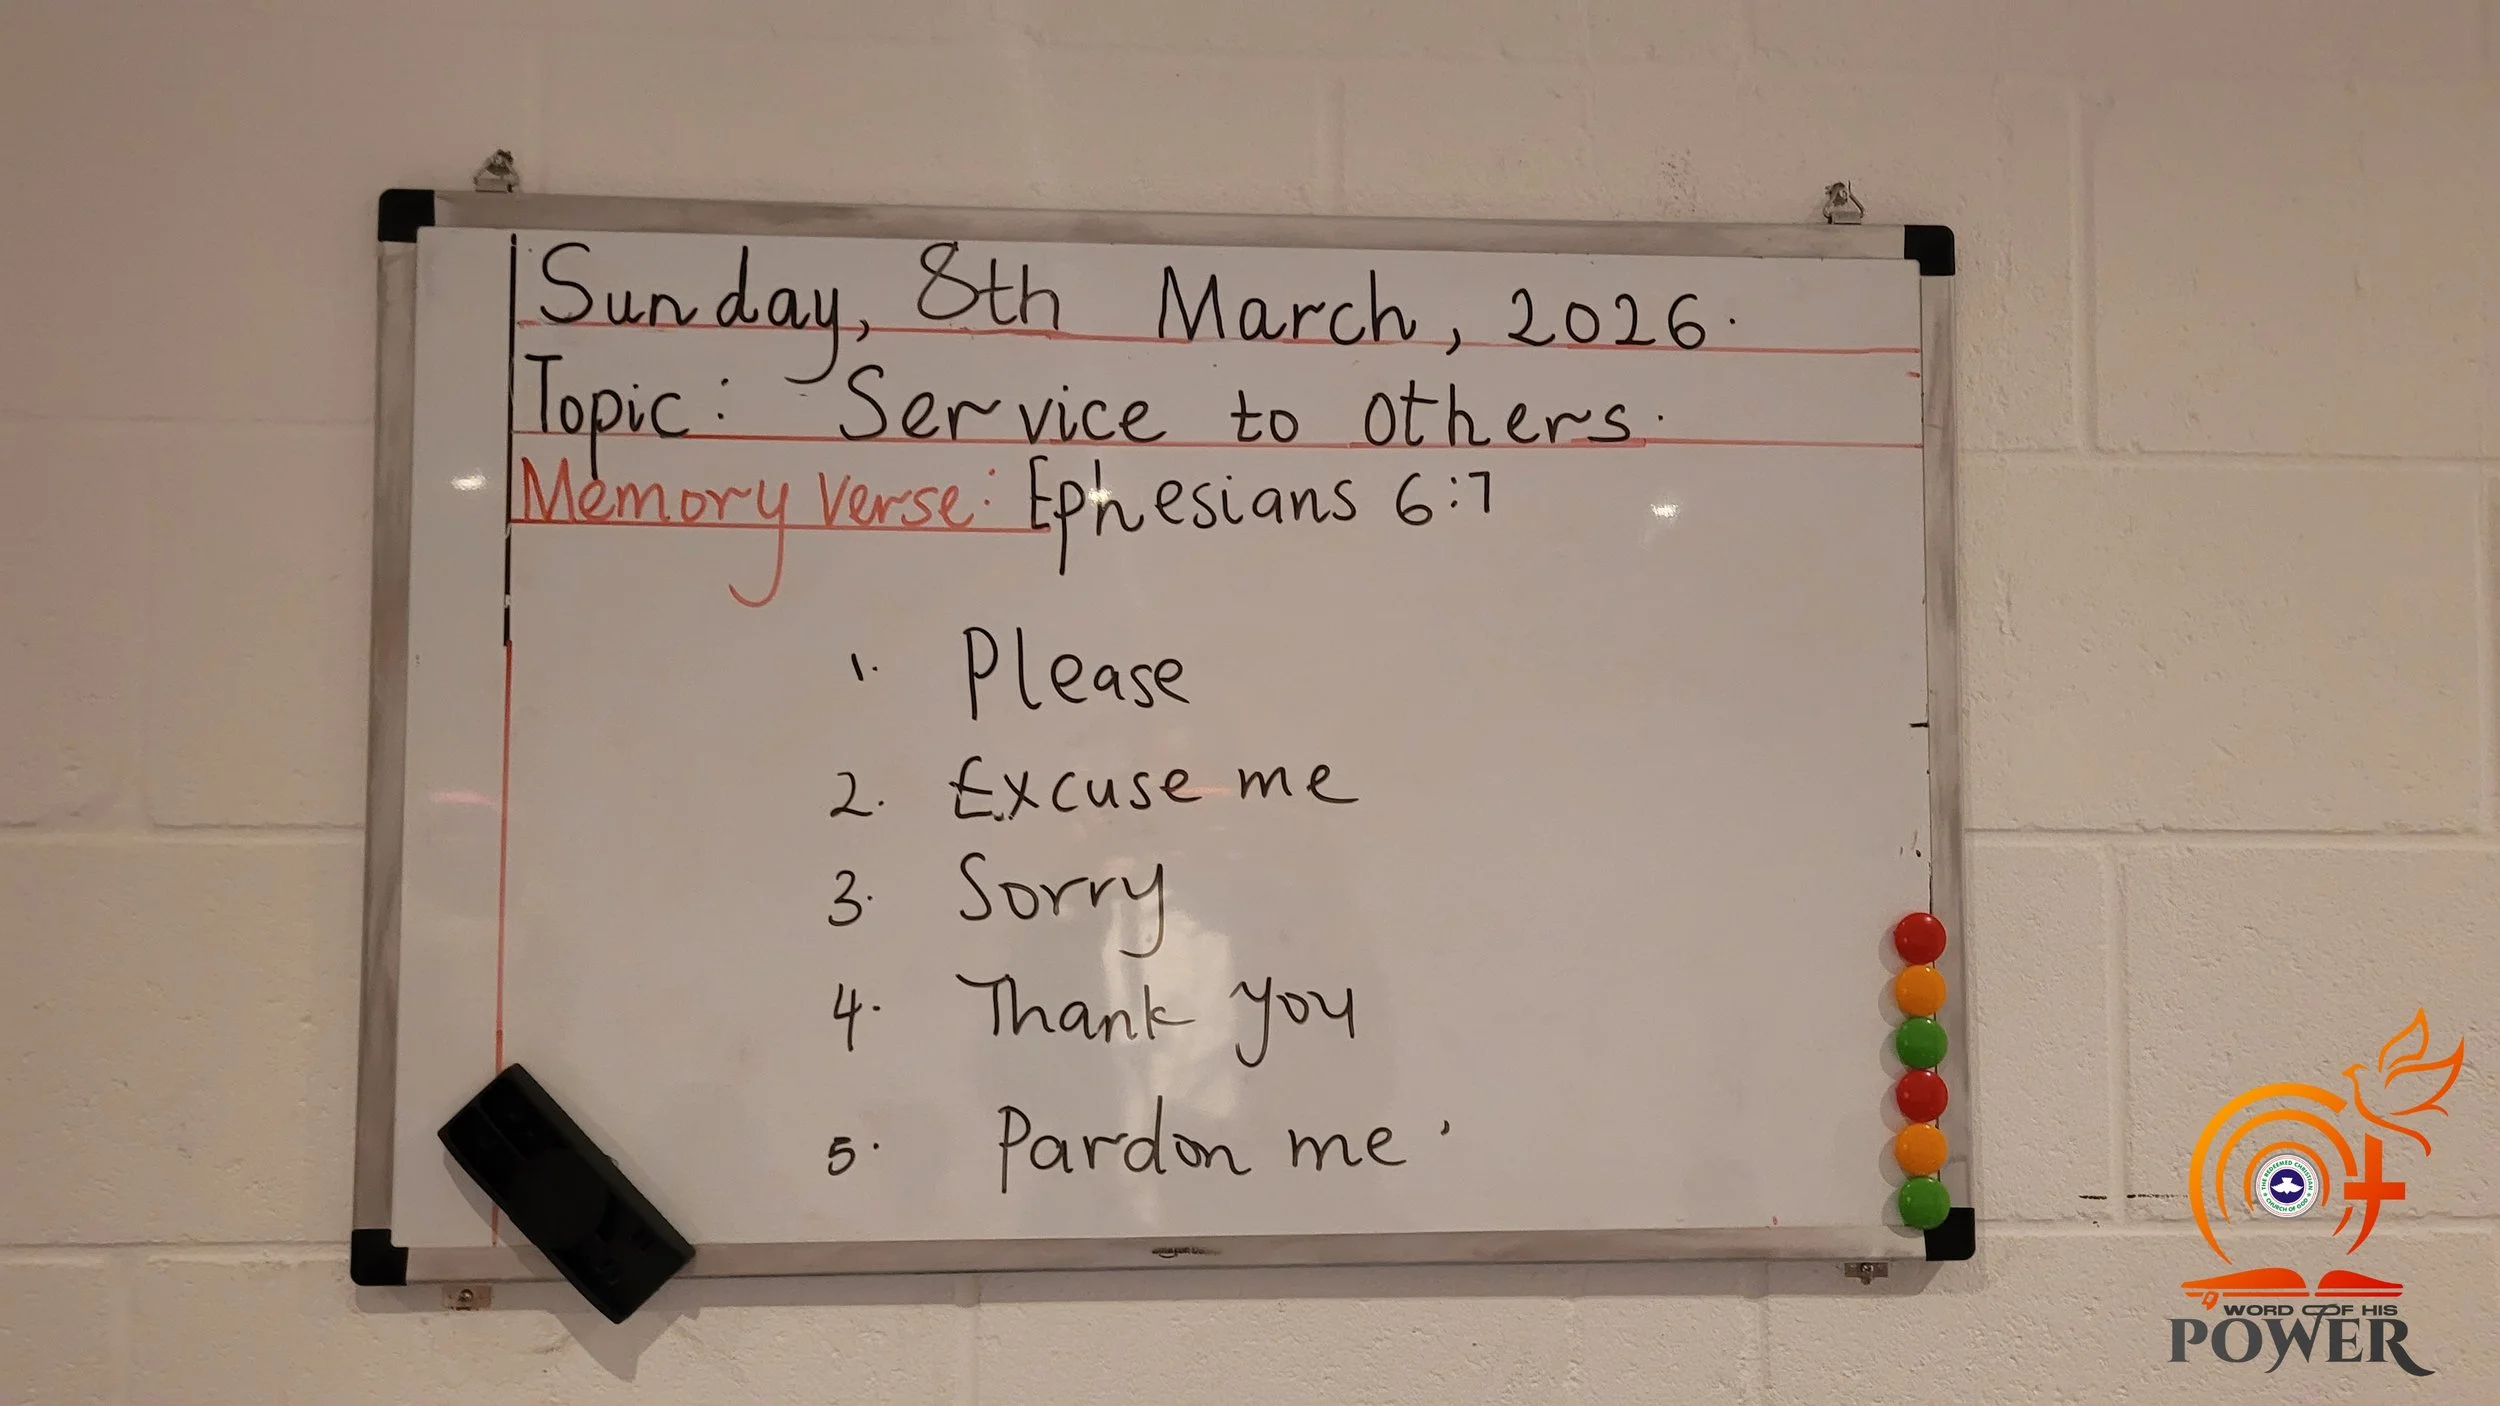 Sunday, 8th March, 2026.
Topic: Service to others.
Memory Verse: Ephesians 6:7
1. Please
2. Excuse me
3. Sorry
4. Thank you
5. Pardon me
THE REDEEMED CHRISTIAN CHURCH OF GOD
WORD OF HIS
POWER